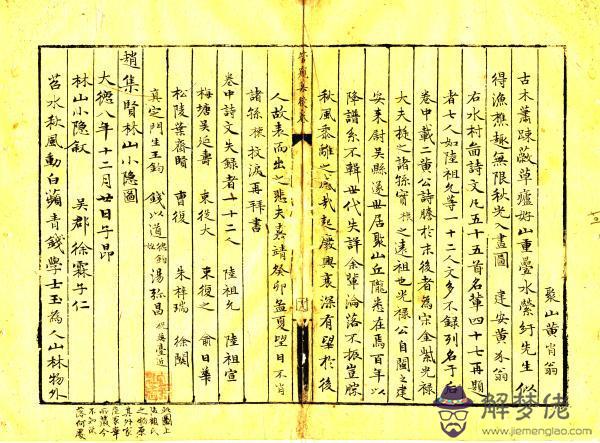 聚山黃肖翁
古木蕭踈蔽草廬好山重疊水縈紆先生似
得漁樵趣無限秋光入畫圖 建安黃翁
右水村啚詩文凡五十五首名輩四十七再題
者七人如陸祖允等一十二人文多不錄列名于右
卷中載二黃公詩牋於末後者為宋金紫光祿
大夫挺之諸孫實之遠祖也光祿公自閩之建
安來尉吳縣遂世居聚山丘隴悉在焉百年以
降譜系不輯世代失詳余輩淪落不振豈勝
秋風黍離之感哉起廢興衰深有望於後
人故表而出之悲夫嘉靖癸卯孟夏望日不肖
諸孫抆淚再拜書
卷中詩文失錄者一十二人 陸祖允 陸祖宣
梅塘吳延壽 束從大 束復之 俞日華
松陵葉齋賢 曹復 朱梓瑞 徐關
真定門生王鈞 錢以道 湯弥昌
趙集賢林山小隱圖
大德八年十二月廿日子昂
林山小隱叙 吳郡徐霖子仁
苕水秋風動白蘋青錢學士玉為人山林物外
解梦佬
www.jiemenglao.com